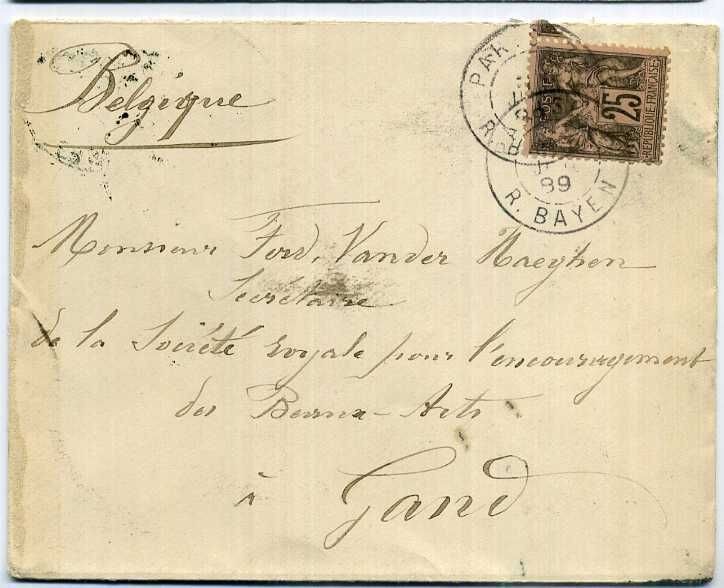 Belgique
PAR
R. BAYEN
89
25
POSTES
RÉPUBLIQUE FRANÇAISE
Monsieur Ferd. Vander Haeghen
Secrétaire
de la Société royale pour l'encouragement
des Beaux-Arts
à Gand